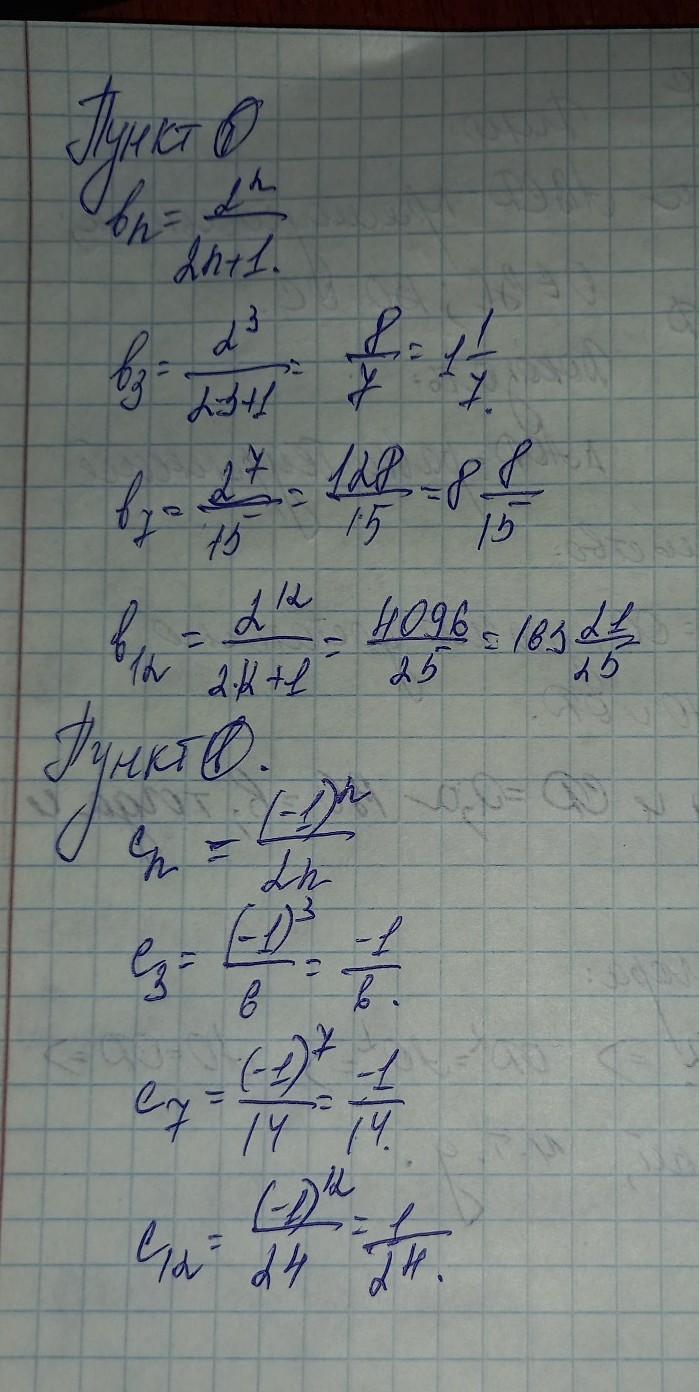 Пункт
bn = 2^n / 2n+1.
b3 = 2^3 / 2·3+1 = 8/7 = 1 1/7.
b7 = 2^7 / 15 = 128/15 = 8 8/15
b12 = 2^12 / 2·12+1 = 4096/25 = 163 21/25
Пункт
cn = (-1)^n / 2n
c3 = (-1)^3 / 6 = -1/6.
c7 = (-1)^7 / 14 = -1/14.
c12 = (-1)^12 / 24 = 1/24.